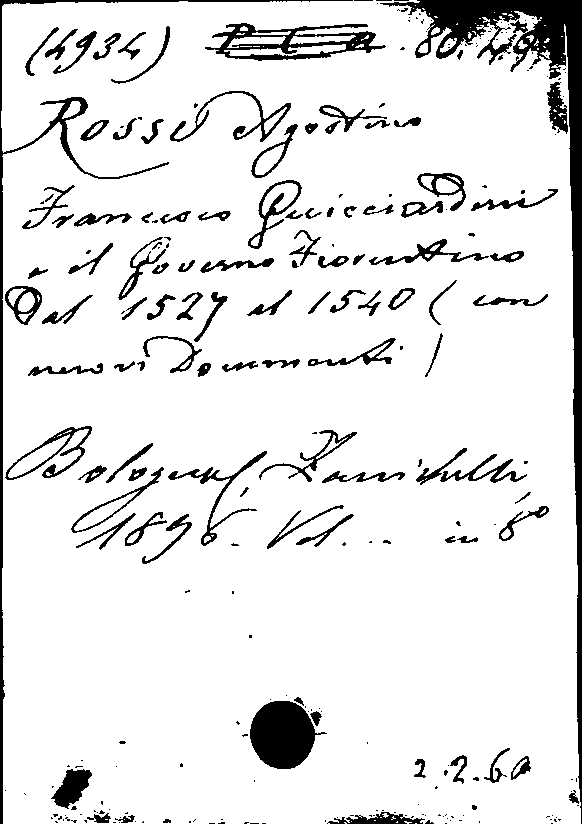 (4934) P C a . 80. 49
Rossi Agostino
Francesco Guicciardini
e il Governo Fiorentino
dal 1527 al 1540 (con
nuovi Documenti)
Bologna, Zanichelli,
1896. Vol. ... in 8º